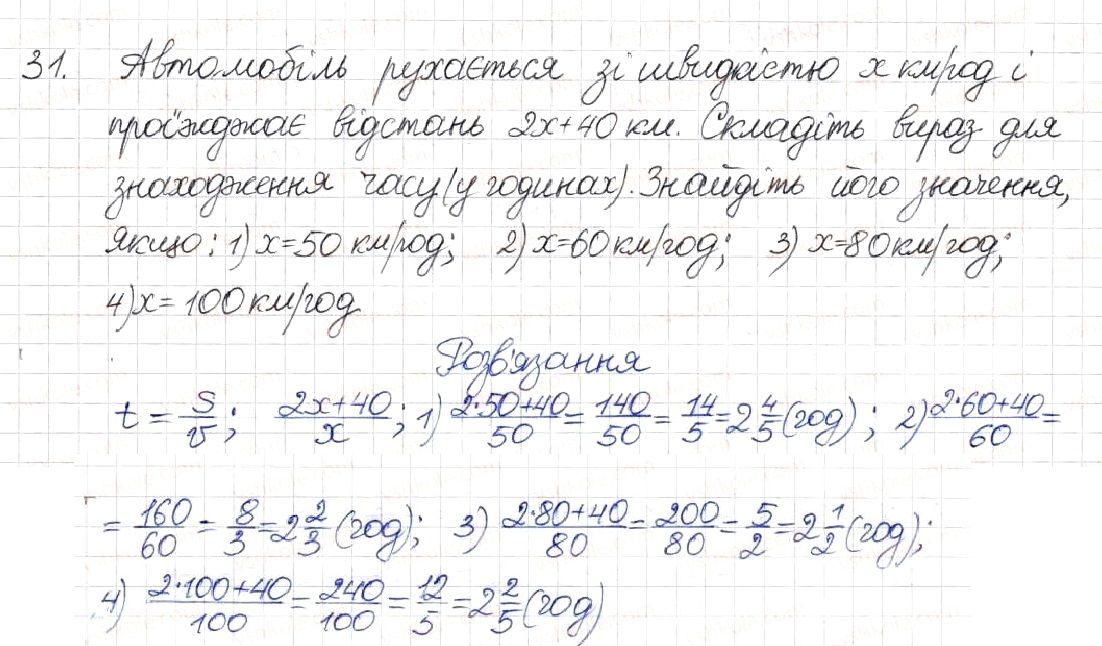 31. Автомобіль рухається зі швидкістю x км/год і
проїжджає відстань 2x+40 км. Складіть вираз для
знаходження часу (у годинах). Знайдіть його значення,
якщо: 1) x=50 км/год; 2) x=60 км/год; 3) x=80 км/год;
4) x= 100 км/год
Розв'язання
t = S/v; (2x+40)/x; 1) (2·50+40)/50 = 140/50 = 14/5 = 2 4/5 (год); 2) (2·60+40)/60 =
= 160/60 = 8/3 = 2 2/3 (год); 3) (2·80+40)/80 = 200/80 = 5/2 = 2 1/2 (год);
4) (2·100+40)/100 = 240/100 = 12/5 = 2 2/5 (год)